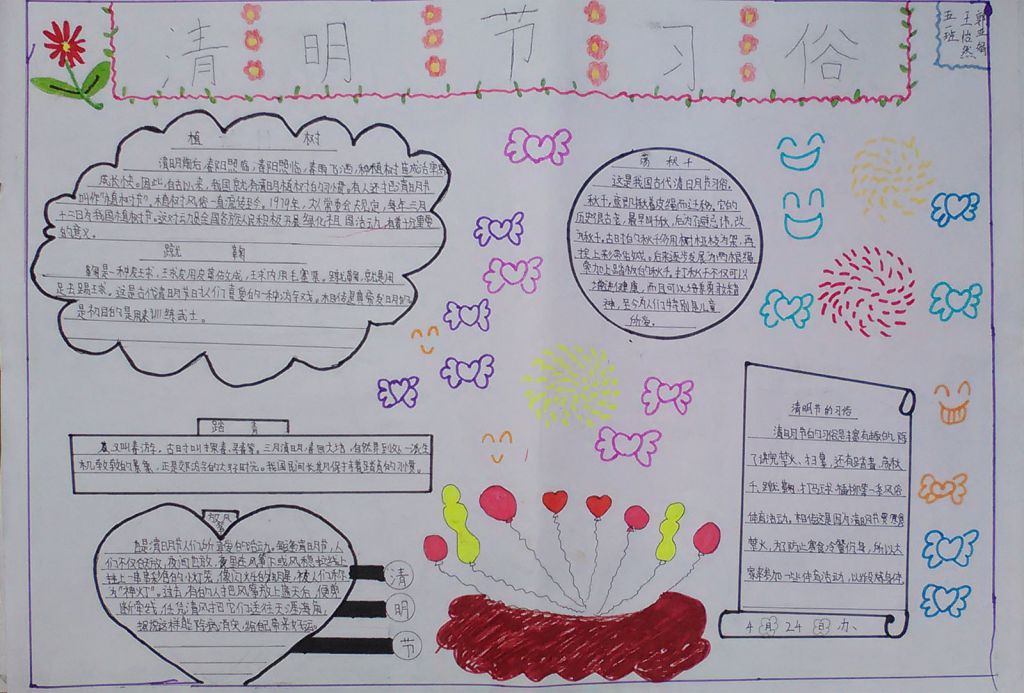 清明节习俗
郭亚娟
王怡然
五一班
植 树
清明前后,春阳照临,春阳照临,春雨飞洒,种植树苗成活率高
成长快。因此,自古以来,我国就有清明植树的习惯。有人还把清明节
叫作"植树节"。植树风俗一直流传至今。1979年,人大常委会大规定,每年三月
十二日为我国植树节。这对动员全国各族人民积极开展绿化祖国活动,有着十分重要
的意义。
蹴 鞠
鞠是一种皮球,球皮用皮革做成,球内用毛塞紧。蹴鞠,就是用
足去踢球。这是古代清明节时人们喜爱的一种游戏。相传是黄帝发明的
是初目的是用来训练武士。
荡秋千
这是我国古代清明节习俗。
秋千,意即揪着皮绳而迁移。它的
历史很古老,最早叫千秋,后为
改为秋千。古时的秋千多用树桠枝为架,再
拴上彩带做成。后来逐步发展为两根绳
索加上踏板的秋千。打秋千不仅可以
增进健康,而且可以培养勇敢精
神,至今为人们特别是儿童
所爱。
踏青
又叫春游。古时叫探春、寻春等。三月清明,春回大地,自然界到处一派生
机勃勃的景象,正是郊游的大好时光。我国民间长期保持着踏青的习惯。
放风筝
也是清明节人们所喜爱的活动。每逢清明节,人
们不仅白天放,夜间也放。夜里在风筝下或风稳拉线上
挂上一串串彩色的小灯笼,像闪烁的明星,被人们称
为"神灯"。过去,有的人把风筝放上蓝天后,便剪
断牵线,任凭清风把它们送往天涯海角,
据说这样能除病消灾,给自己带来好运。
清
明
节
清明节的习俗
清明节的习俗是丰富有趣的,除
了讲究禁火、扫墓,还有踏青、荡秋
千、蹴鞠、打马球、插柳等一系列风俗
体育活动。相传这是因为清明节要寒食
禁火,为了防止寒食冷餐伤身,所以大
家来参加一些体育活动,以锻炼身体。
4月24日办、